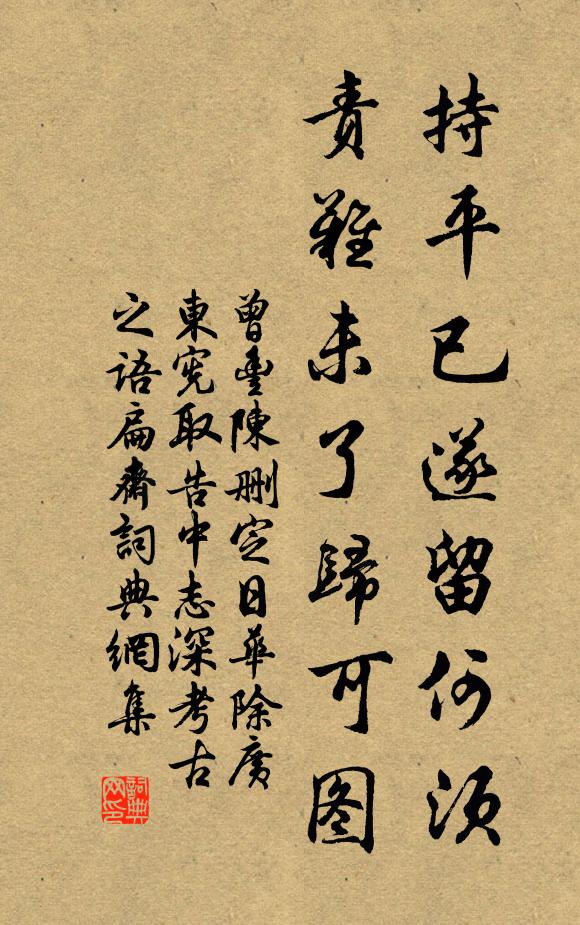 持平已遂留何须
责難未了歸可图
曾豐陳删定日華除廣
東宪取告中志深考古
之语扁齋詞典網集
詞典网印